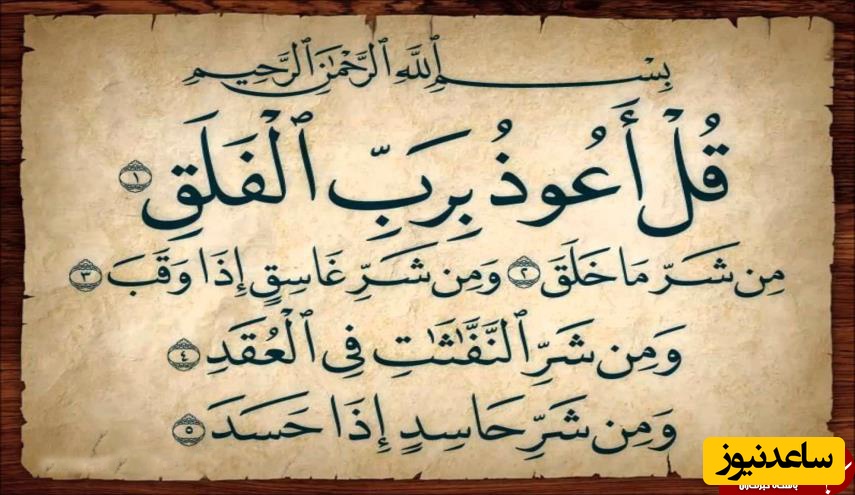 بِسْمِ ٱللَّهِ ٱلرَّحْمَٰنِ ٱلرَّحِيمِ
قُلْ أَعُوذُ بِرَبِّ ٱلْفَلَقِ ١
مِن شَرِّ مَا خَلَقَ ٢ وَمِن شَرِّ غَاسِقٍ إِذَا وَقَبَ ٣
وَمِن شَرِّ ٱلنَّفَّٰثَٰتِ فِى ٱلْعُقَدِ ٤
وَمِن شَرِّ حَاسِدٍ إِذَا حَسَدَ ٥
ساعدنیوز